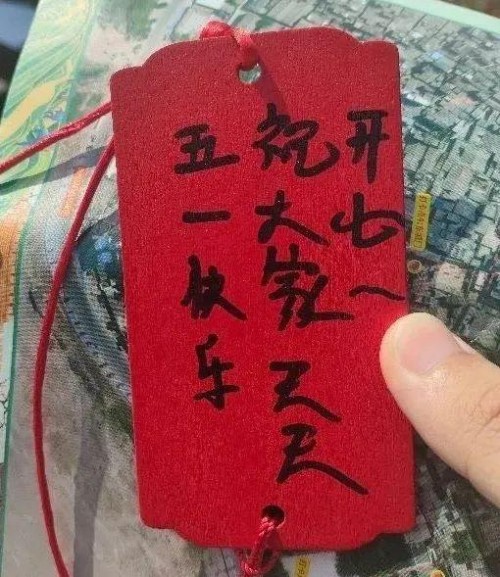 五一快乐
祝大家天天
开心~